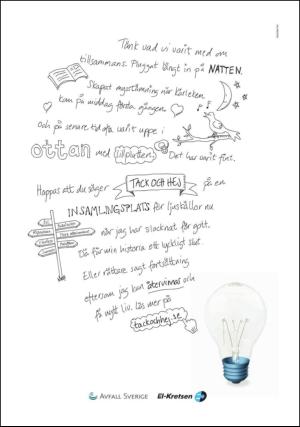 Tänk vad vi varit med om
tillsammans. Pluggat långt in på NATTEN.
Skapat mysstämning när kärleken
kom på middag första gången.
Och på senare tid ofta varit uppe i
ottan med lillplutten. Det har varit fint.
Hoppas att du säger TACK OCH HEJ på en
INSAMLINGSPLATS för ljuskällor nu
när jag har slocknat för gott.
Då får min historia ett lyckligt slut.
Eller rättare sagt fortsättning
eftersom jag kan återvinnas och
få nytt liv. Läs mer på
tackochhej.se
AVFALL SVERIGE El-Kretsen